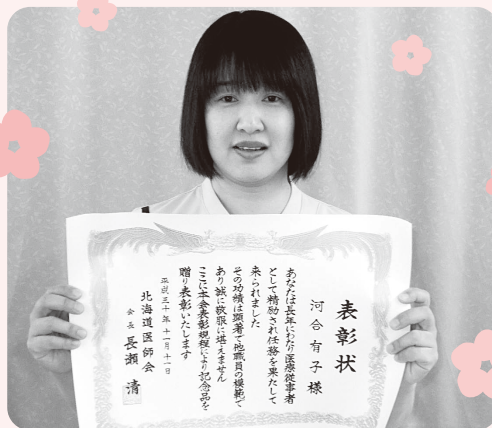 表彰状
河合有子様
あなたは長年にわたり医療従事者
として精励され任務を果たして
来られました
その功績は顕著で他職員の模範で
あり誠に敬服に堪えません
ここに本会表彰規程により記念品を
贈り表彰いたします
平成三十年十一月十一日
北海道医師会
会長 長瀬清